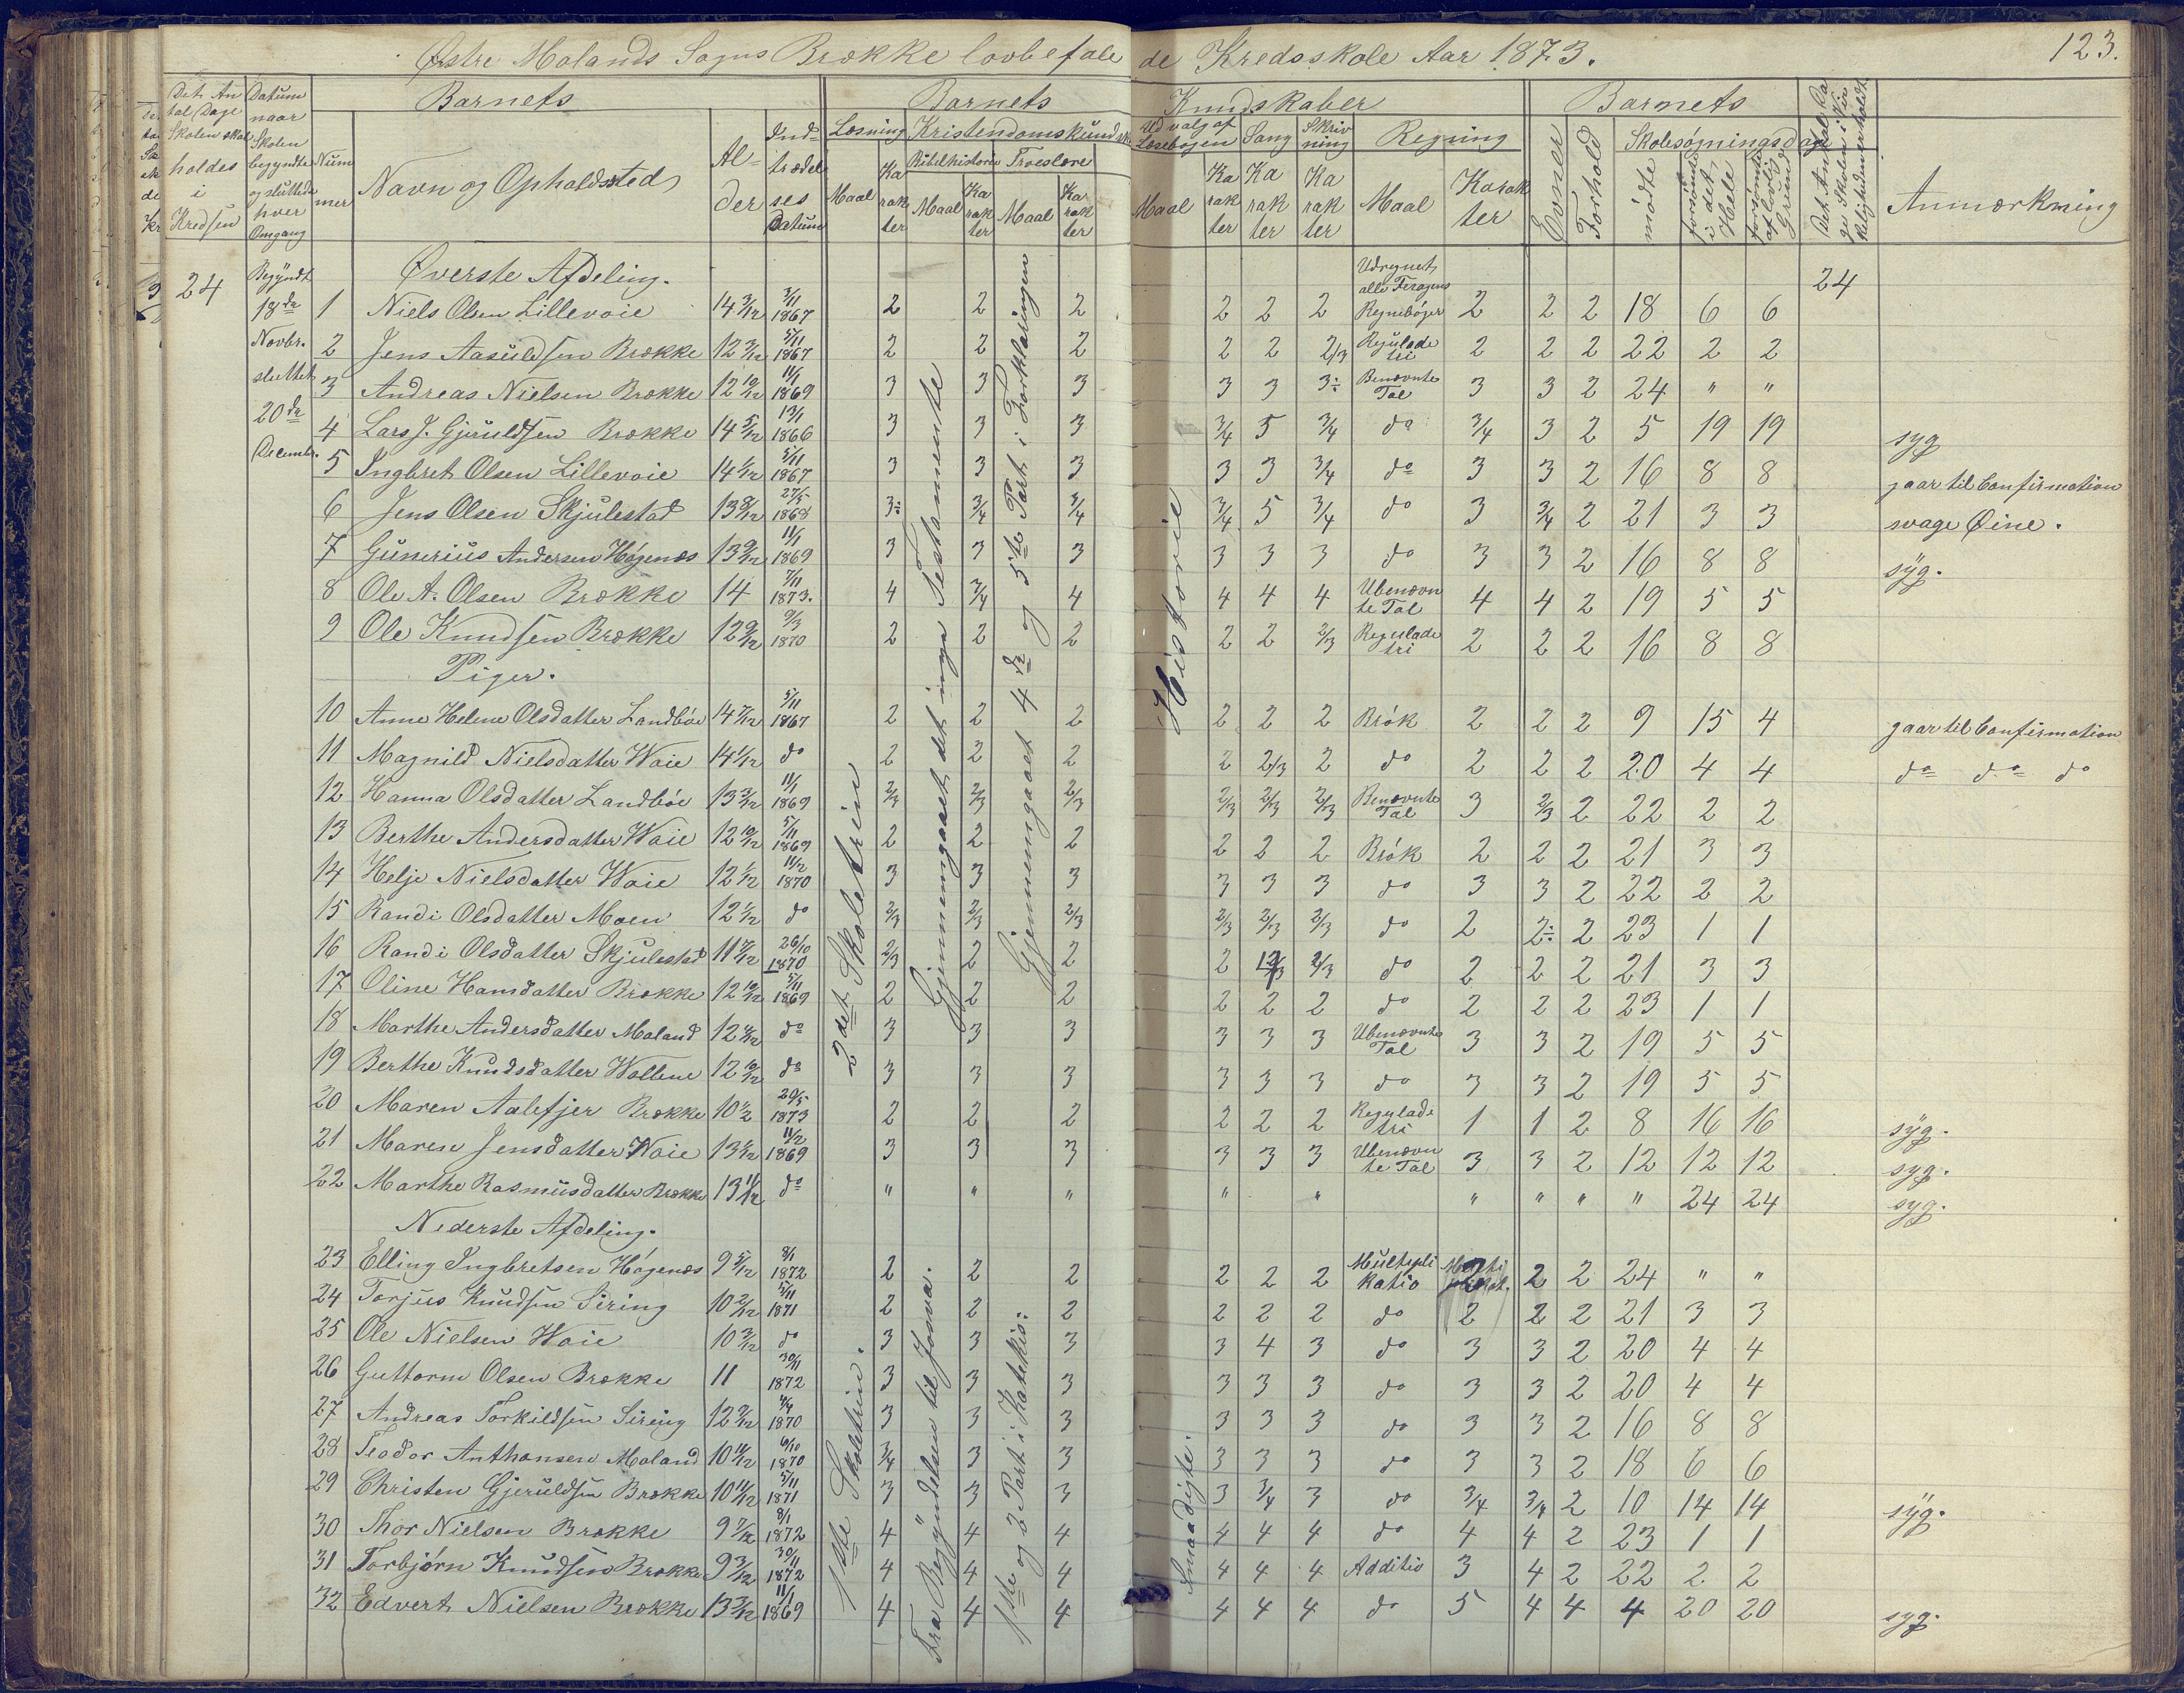 Østre Molands Sogns Brække lovbefalede Kredsskole Aar 1873.
123.
Det An tal Dage Skolen skal holdes i Kredsen
Datum naar Skolen begyndte og sluttede hver Omgang
Barnets
Nummer
Navn og Opholdssted
Alder
Indtrædelses Datum
Barnets Kundskaber
Læsning
Maal
Karakter
Kristendomskundsk
Bibelhistorie
Maal
Karakter
Troeslære
Maal
Karakter
Udvalg af Læsebogen
Maal
Karakter
Sang
Karakter
Skrivning
Karakter
Regning
Maal
Karakter
Barnets
Evner
Forhold
Skolesøgningsdage
mødte
forsømte i det Hele
forsømte af lovlig Grund
Det Antal Dage Skolen i Virkeligheden er holdt
Anmærkning
24
Begyndt 18de Novbr. sluttet 20de Decembr.
24
2det Skoletrin
Gjennemgaaet det nye Testamente
Gjennemgaaet 4de og 5te Part i Forklaringen
Historie
Øverste Afdeling.
1 Niels Olsen Lillevoie 14 3/12 3/11 1867 2 2 2 2 2 2 Udregnet alle Feragens Regnebøger 2 2 2 18 6 6
2 Jens Aasuldsen Brække 12 3/12 5/11 1867 2 2 2 2 2 2/3 Regulade tri 2 2 2 22 2 2
3 Andreas Nielsen Brække 12 10/12 11/1 1869 3 3 3 3 3 3÷ Benævnte Tal 3 3 2 24 " "
4 Lars J. Gjeruldsen Brække 14 5/12 13/1 1866 3 3 3 3/4 5 3/4 do 3/4 3 2 5 19 19 syg
5 Ingbret Olsen Lillevoie 14 1/12 5/11 1867 3 3 3 3 3 3/4 do 3 3 2 16 8 8 gaar til Confirmation
6 Jens Olsen Skjulestad 13 8/12 27/5 1868 3÷ 3/4 3/4 3/4 5 3/4 do 3 3/4 2 21 3 3 svage Øine.
7 Gunerius Andersen Høgenæs 13 9/12 11/1 1869 3 3 3 3 3 3 do 3 3 2 16 8 8 syg.
8 Ole A. Olsen Brække 14 7/11 1873. 4 3/4 4 4 4 4 Ubenævn te Tal 4 4 2 19 5 5
9 Ole Knudsen Brække 12 9/12 9/3 1870 2 2 2 2 2 2/3 Regulade tri 2 2 2 16 8 8
Piger.
10 Anne Helene Olsdatter Landbøe 14 7/12 5/11 1867 2 2 2 2 2 2 Brøk 2 2 2 9 15 4 gaar til Confirmation
11 Magnild Nielsdatter Woie 14 1/12 do 2 2 2 2 2/3 2 do 2 2 2 20 4 4 do do do
12 Hanna Olsdatter Landbøe 13 3/12 11/1 1869 2/3 2/3 2/3 2/3 2/3 2/3 Benævnte Tal 3 2/3 2 22 2 2
13 Berthe Andersdatter Woie 12 10/12 5/11 1869 2 2 2 2 2 2 Brøk 2 2 2 21 3 3
14 Helje Nielsdatter Woie 12 1/12 11/2 1870 3 3 3 3 3 3 do 3 3 2 22 2 2
15 Randi Olsdatter Moen 12 1/12 do 2/3 2/3 2/3 2/3 2/3 2/3 do 2 2÷ 2 23 1 1
16 Randi Olsdatter Skjulestad 11 8/12 26/10 1870 2/3 2 2 2 2/3 2/3 do 2 2 2 21 3 3
17 Oline Hansdatter Brække 12 10/12 5/11 1869 2 2 2 2 2 2 do 2 2 2 23 1 1
18 Marthe Andersdatter Moland 12 4/12 do 3 3 3 3 3 3 Ubenævnte Tal 3 3 2 19 5 5
19 Berthe Knudsdatter Wallene 12 10/12 do 3 3 3 3 3 3 do 3 3 2 19 5 5
20 Maren Aalefjer Brække 10 1/2 29/5 1873 2 2 2 2 2 2 Regulade tri 1 1 2 8 16 16 syg.
21 Maren Jensdatter Woie 13 1/12 11/2 1869 3 3 3 3 3 3 Ubenævn te Tal 3 3 2 12 12 12 syg.
22 Marthe Rasmusdatter Brække 13 11/12 do " " " " " " " " " 24 24 syg.
Nederste Afdeling.
1ste Skoletrin.
Fra Begyndelsen til Josva.
1ste og 2 Part i Katekis:
Smaadigte.
23 Elling Ingbretsen Høgenæs 9 5/12 8/1 1872 2 2 2 2 2 2 Multipli katio 2 2 2 24 " "
24 Torjus Knudsen Siring 10 2/12 5/11 1871 2 2 2 2 2 2 do 2 2 2 21 3 3
25 Ole Nielsen Woie 10 3/12 do 3 3 3 3 4 3 do 3 3 2 20 4 4
26 Guttorm Olsen Brække 11 30/11 1872 3 3 3 3 3 3 do 3 3 2 20 4 4
27 Andreas Torkildsen Siring 12 9/12 1870 3 3 3 3 3 3 do 3 3 2 16 8 8
28 Teodor Anthonsen Moland 10 11/12 6/10 1870 3/4 3 3 3 3 3 do 3 3 2 18 6 6
29 Christen Gjeruldsen Brække 10 11/12 5/11 1871 3 3 3 3 3/4 3 do 3/4 3/4 2 10 14 14 syg.
30 Thor Nielsen Brække 9 7/12 8/1 1872 4 4 4 4 4 4 do 4 4 2 23 1 1
31 Torbjørn Knudsen Brække 9 3/12 30/11 1872 4 4 4 4 4 4 Additio 3 4 2 22 2 2
32 Edvert Nielsen Brække 13 3/12 11/1 1869 4 4 4 4 4 4 do 5 4 4 4 20 20 syg.